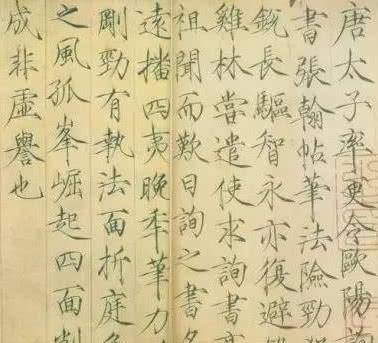 唐太子率更令歐陽詢
書張翰帖筆法險勁
銳長驅智永亦復避
雞林嘗遣使求詢書高
祖聞而歎曰詢之書名
遠播四夷晚秊筆力
剛勁有執法面折庭
之風孤峯崛起四面削
成非虛譽也